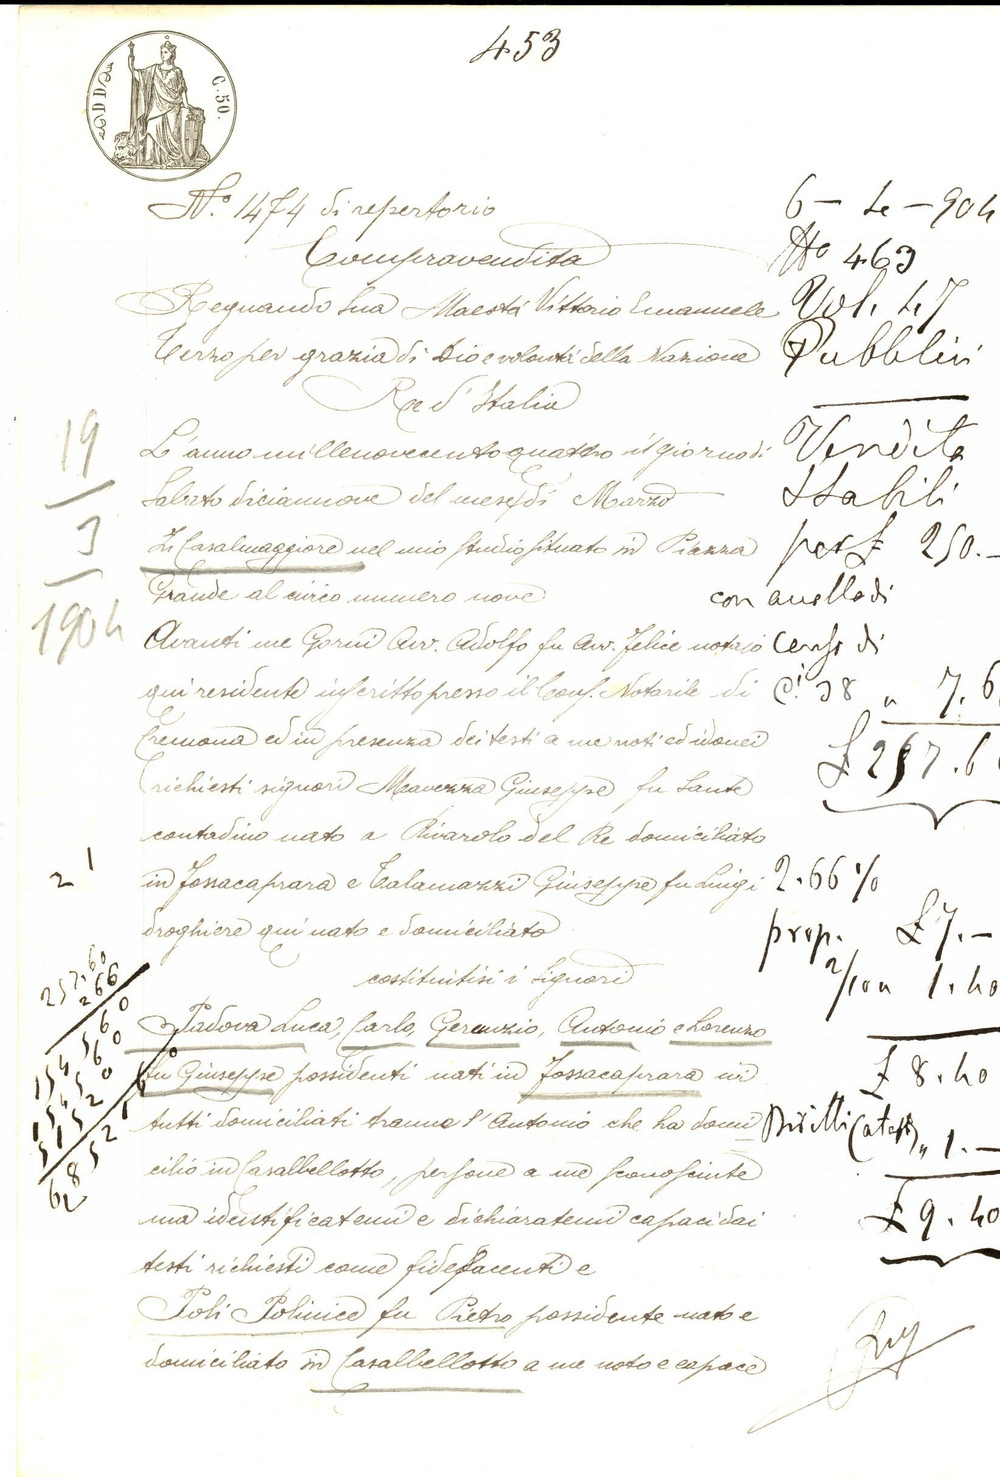 453
C. 50.
N.° 1474 di repertorio
Compravendita
Regnando Sua Maestà Vittorio Emanuele
Terzo per grazia di Dio e volontà della Nazione
Re d'Italia
L'anno millenovecentoquattro il giorno di
Sabato diciannove del mese di Marzo
In Casalmaggiore nel mio studio situato in Piazza
Grande al civico numero nove
Avanti me Gorni Avv. Adolfo fu Avv. Felice notaio
qui residente inscritto presso il Cons. Notarile di
Cremona ed in presenza dei testi a me noti ed idonei
richiesti signori Mavezza Giuseppe fu Sante
contadino nato a Rivarolo del Re domiciliato
in Fossacaprara e Talamazzi Giuseppe fu Luigi
droghiere qui nato e domiciliato
costituitisi i Signori
Padova Luca, Carlo, Gerenzio, Antonio e Lorenzo
fu Giuseppe possidenti nati in Fossacaprara ivi
tutti domiciliati tranne l'Antonio che ha domi
cilio in Casalbellotto, persone a me sconosciute
ma identificatemi e dichiaratemi capaci dai
testi richiesti come fidefacenti e
Poli Polinice fu Pietro possidente nato e
domiciliato in Casalbellotto a me noto e capace
6 - 4 - 904
N° 463
Vol. 47
Pubblici
Vendita
Stabili
per £ 250.-
con avello di
censo di
C.i 38 " 7.6
£ 257.6
2.66 %
prop. £ 7.-
2/100 1.40
£ 8.40
Diritti Catast. " 1.-
£ 9.40
19
3
1904
2 1
257.60
266
154560
154560
51520
685216